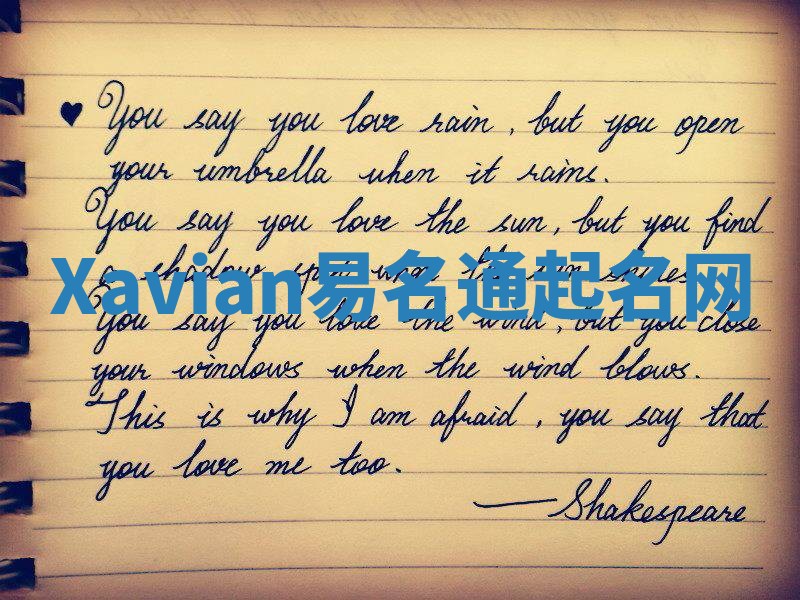 ♥ You say you love rain, but you open
your umbrella when it rains.
You say you love the sun, but you find
a shadow spot when the sun shines.
Xavian易名通起名网
You say you love the wind, but you close
your windows when the wind blows.
This is why I am afraid, you say that
you love me too.
—Shakespeare